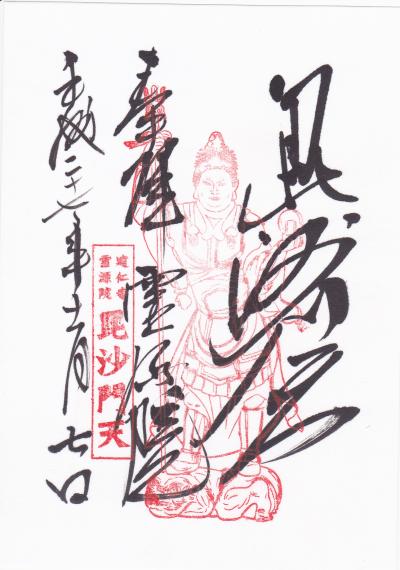 毘沙門天
奉拝 霊源院
平成二十七年十一月七日
建仁寺
霊源院
毘沙門天